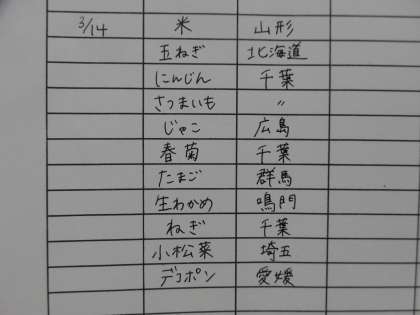 3/14 米 山形
玉ねぎ 北海道
にんじん 千葉
さつまいも 〃
じゃこ 広島
春菊 千葉
たまご 群馬
生わかめ 鳴門
ねぎ 千葉
小松菜 埼玉
デコポン 愛媛